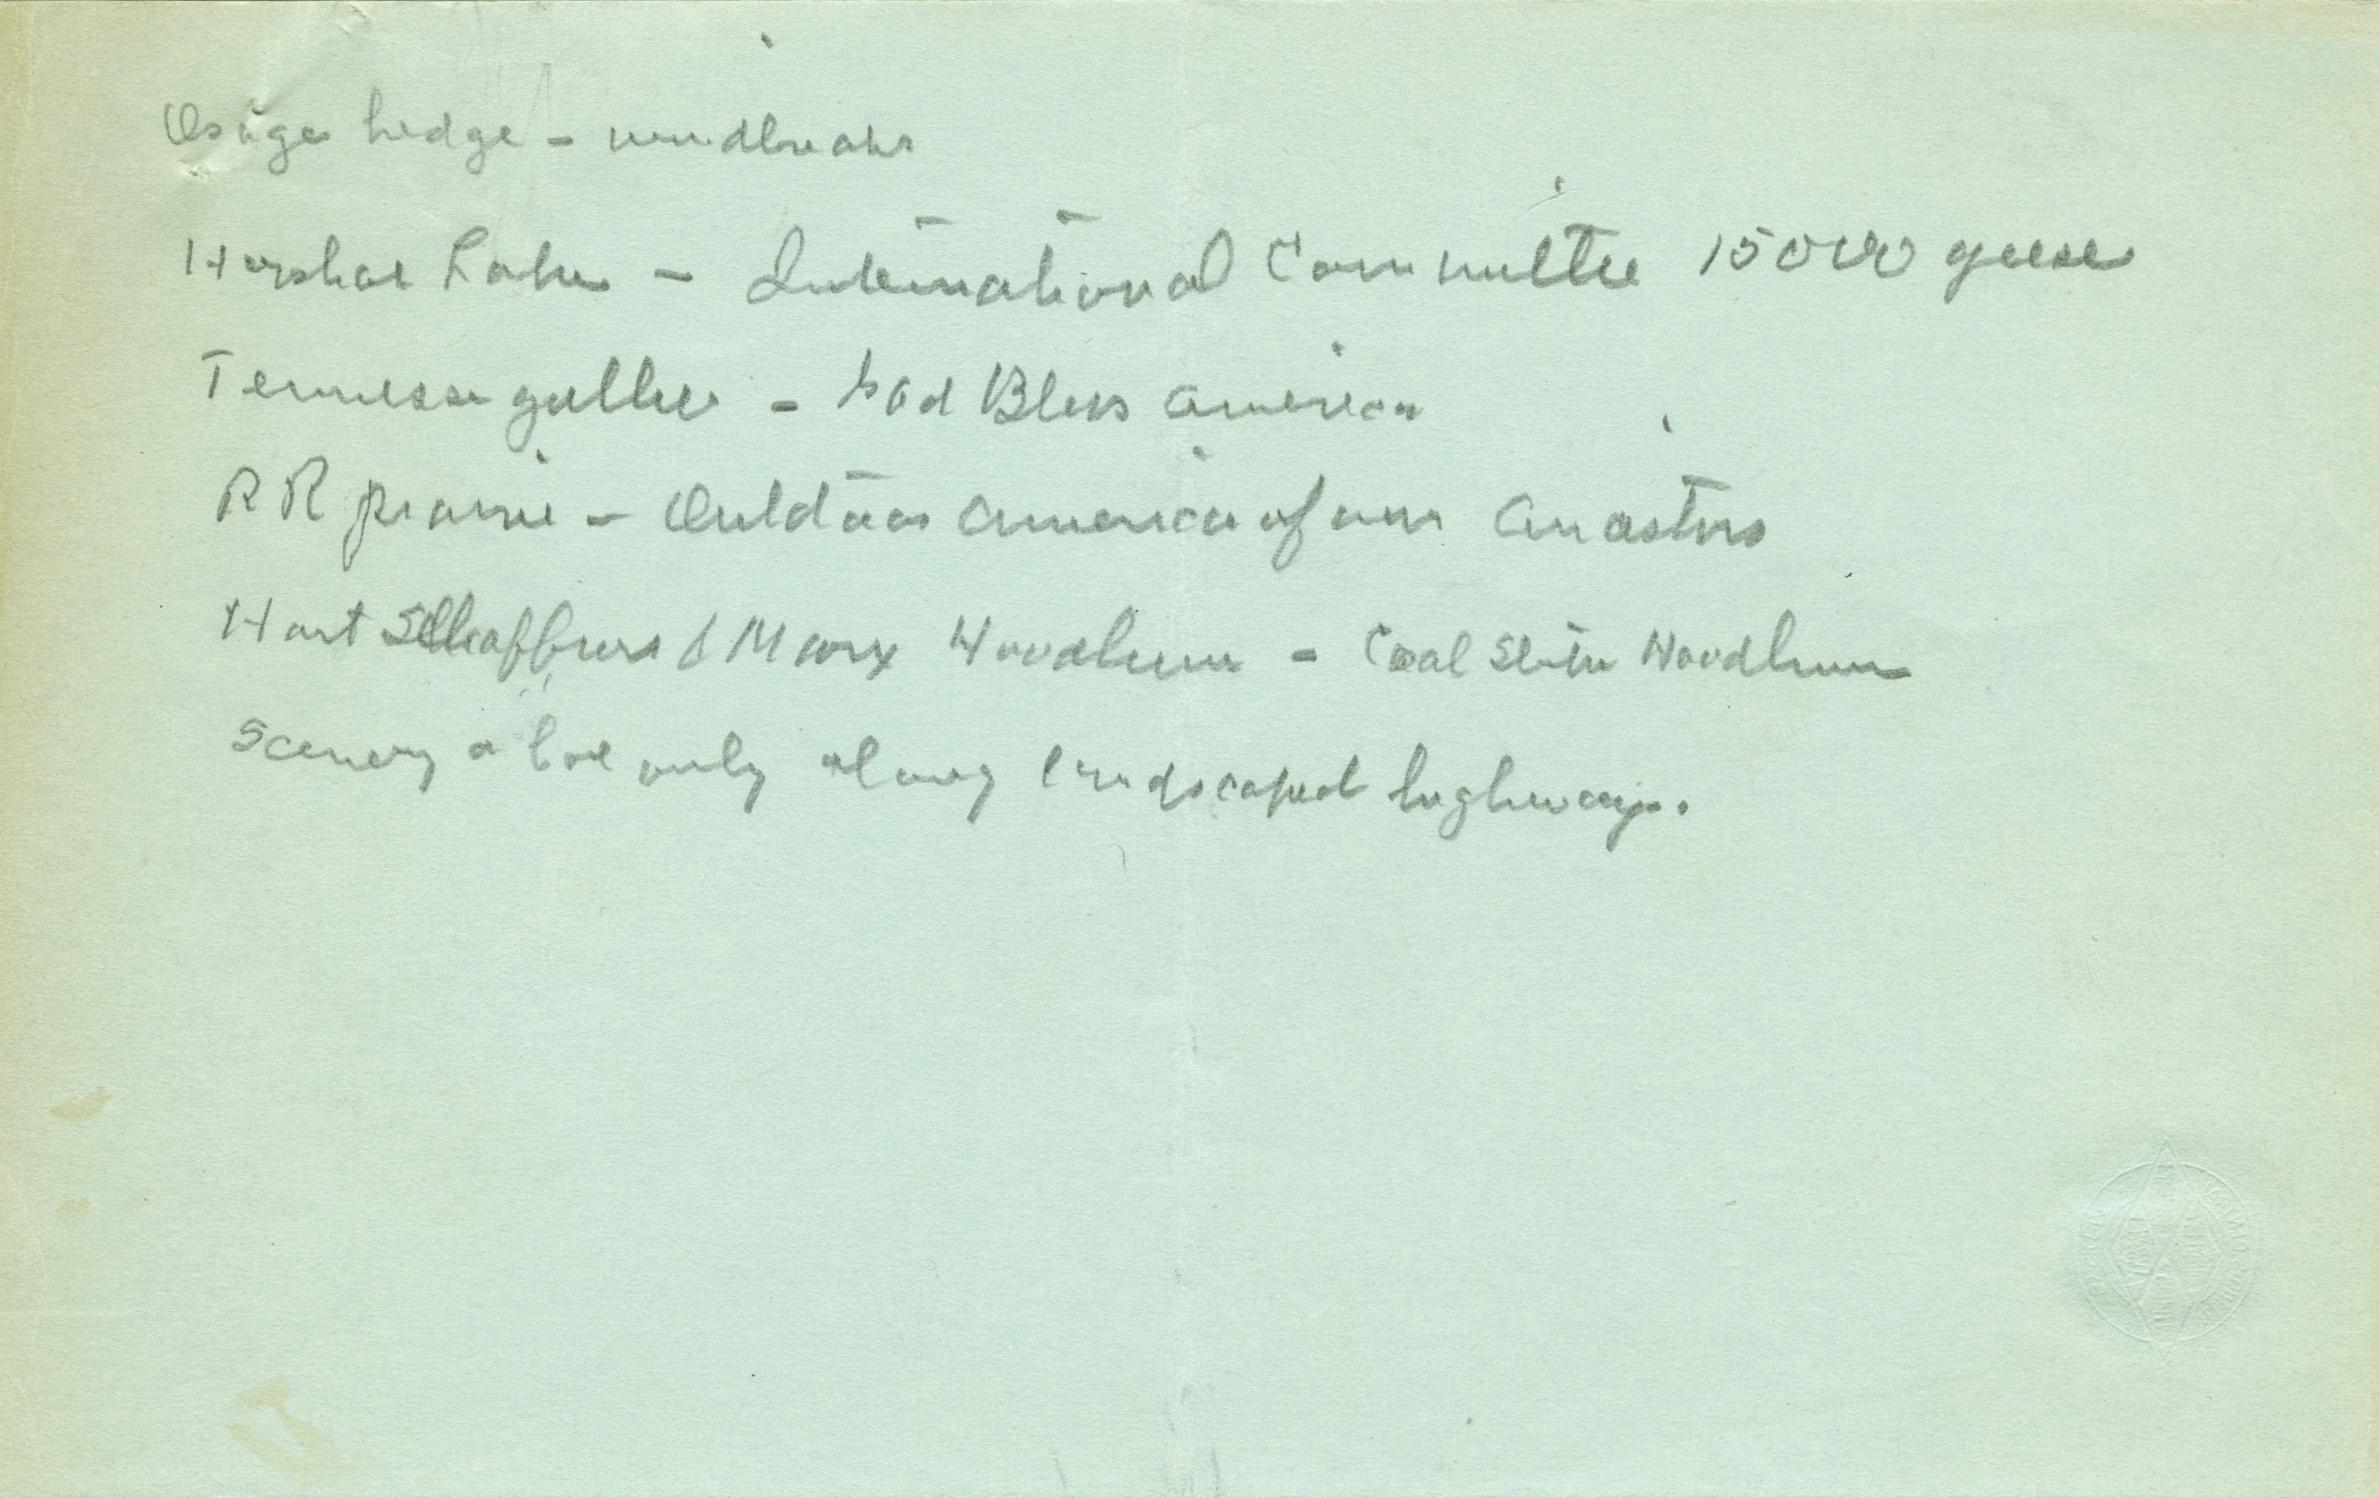 Osage hedge - windbreaks
Lake - International Committee 15000 geese
Tennessee gullies - God Bless America
RR prairie - Outdoor America of our Ancestors
Hart Schaffner & Marx Woodburn - Coal Woodburn
Scenery a only along landscaped highways.